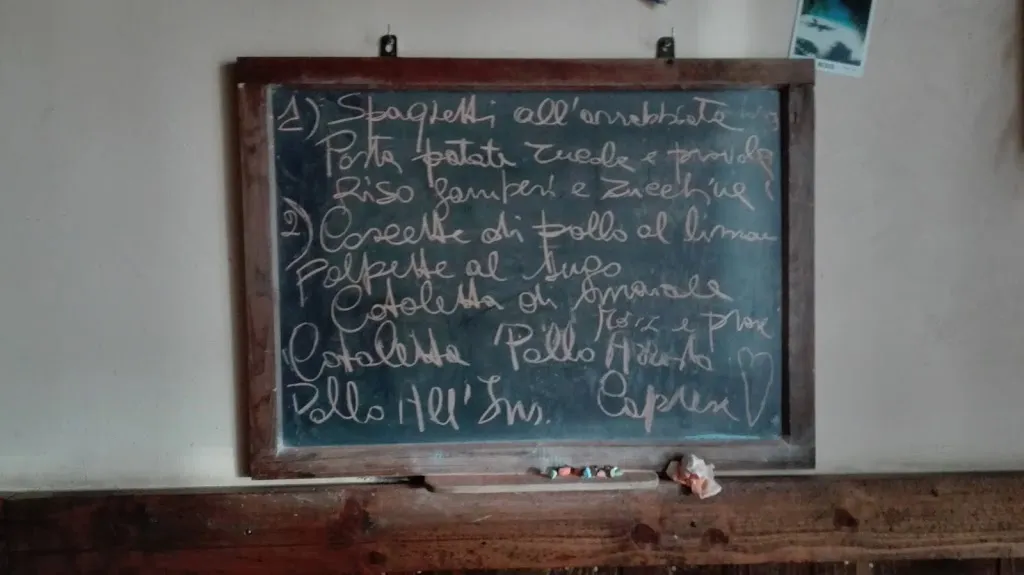 1) Spaghetti all'arrabbiata
Pasta patate zucca e provola
Riso gamberi e zucchine
2) Coscette di pollo al limone
Polpette al sugo
Cotoletta di
Cotoletta Pollo Arrosto
Pollo All'Ins. Caprese